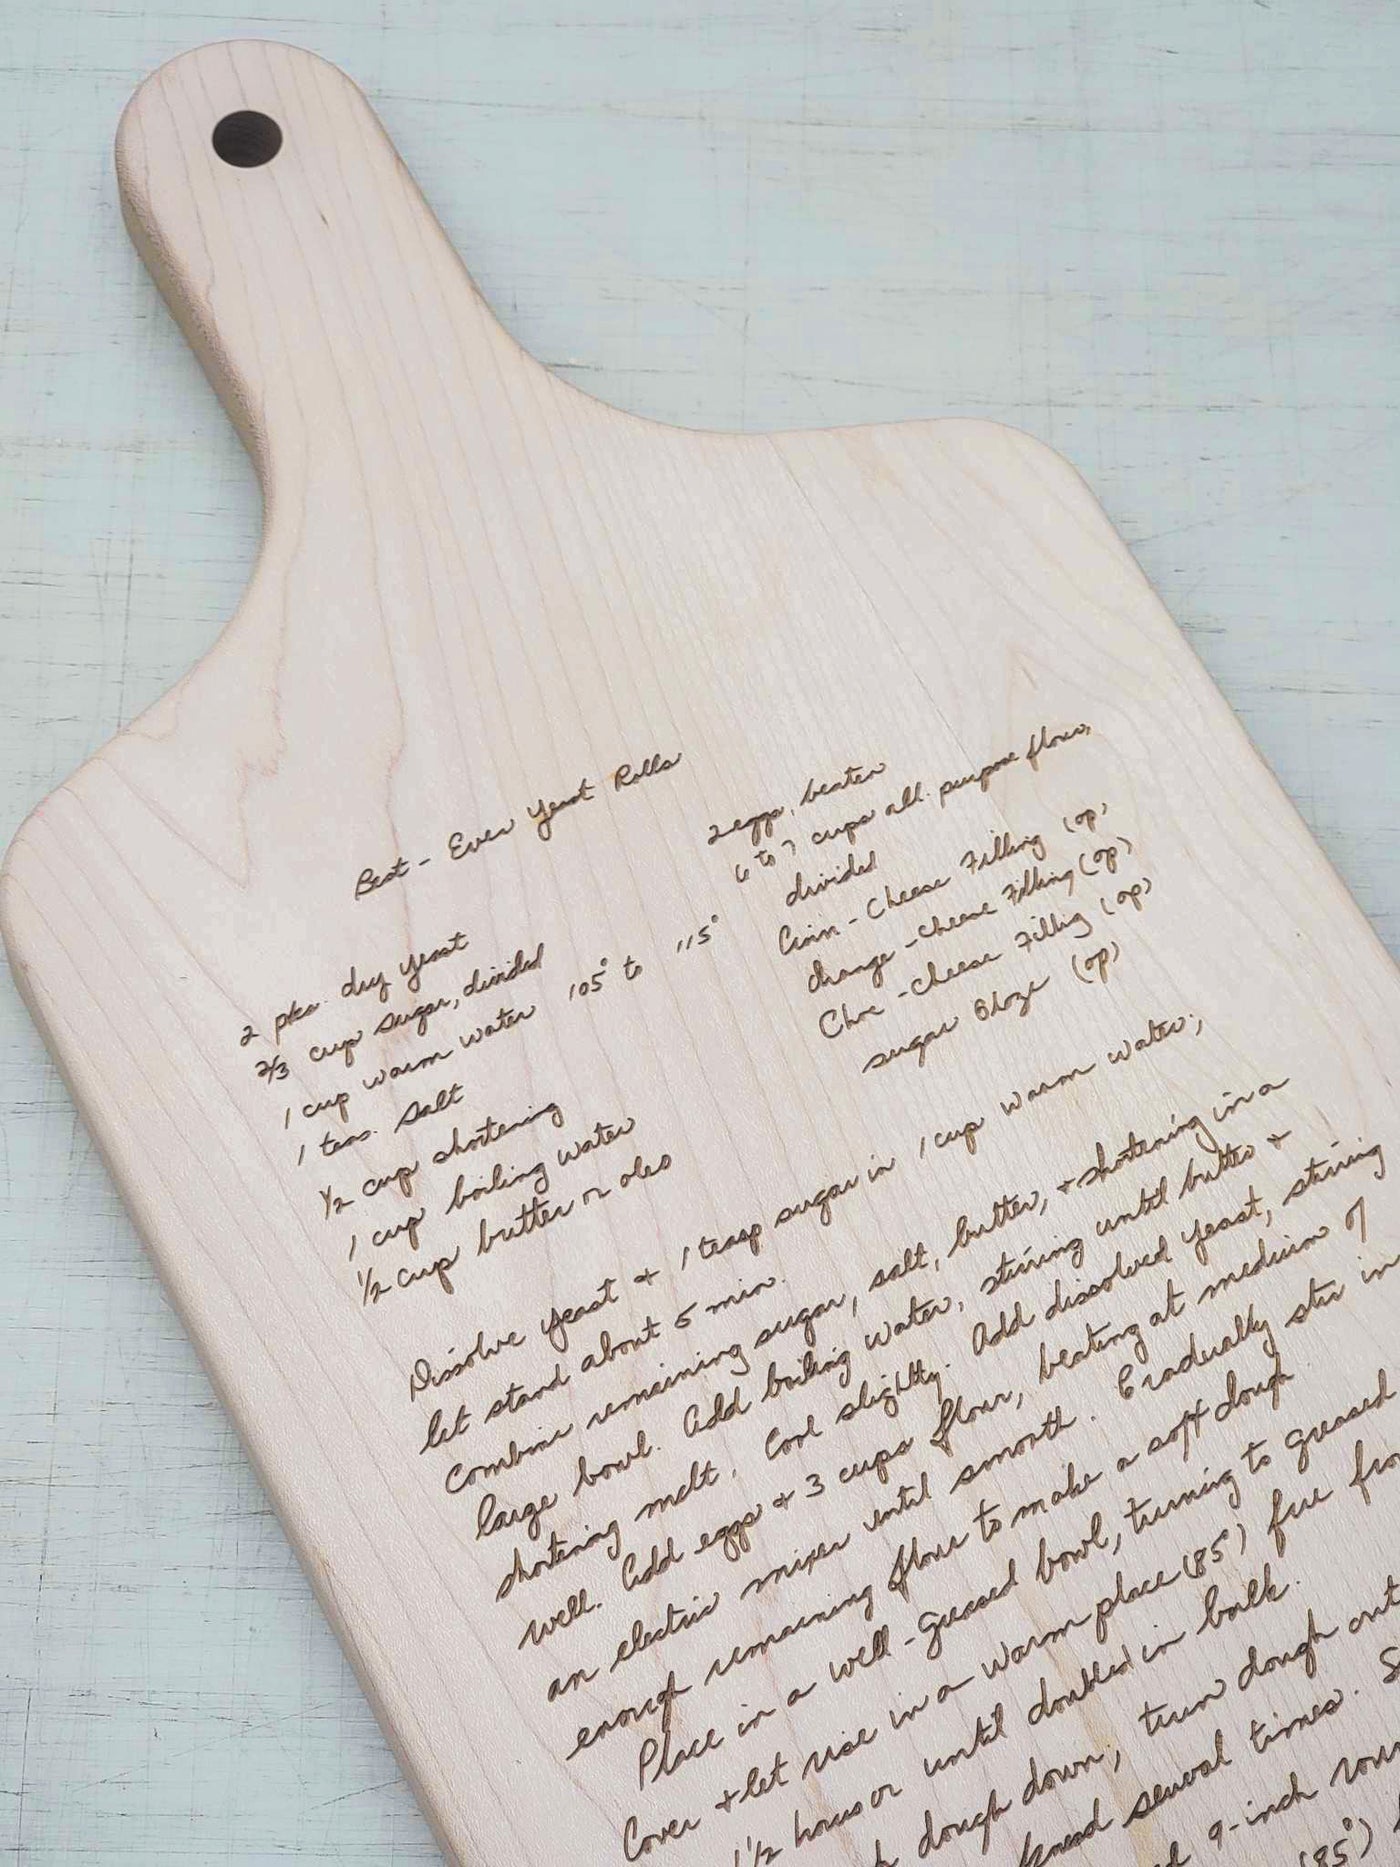 Best-Ever Yeast Rolls
2 pks. dry yeast
2/3 cup sugar, divided
1 cup warm water 105° to 115°
1 teas. salt
1/2 cup shortening
1 cup boiling water
1/2 cup butter or oleo
2 eggs, beaten
6 to 7 cups all purpose flour,
divided
Cinn-Cheese Filling (op)
Orange-cheese Filling (op)
Choc-cheese Fillig (op)
sugar Glaze (op)
Dissolve yeast & 1 teasp sugar in 1 cup warm water;
let stand about 5 min.
Combine remaining sugar, salt, butter, & shortening in a
large bowl. Add boiling water, stirring until butter &
shortening melt. Cool slightly. Add dissolved yeast, stirring
well. Add eggs & 3 cups flour, beating at medium of
an electric mixer until smooth. Gradually stir in
enough remaining flour to make a soft dough.
Place in a well-greased bowl, turning to greased
Cover & let rise in a warm place (85°) free fro
1 1/2 hours or until doubled in bulk.
dough down; turn dough out
knead several times. S
9-inch roun
(85°)